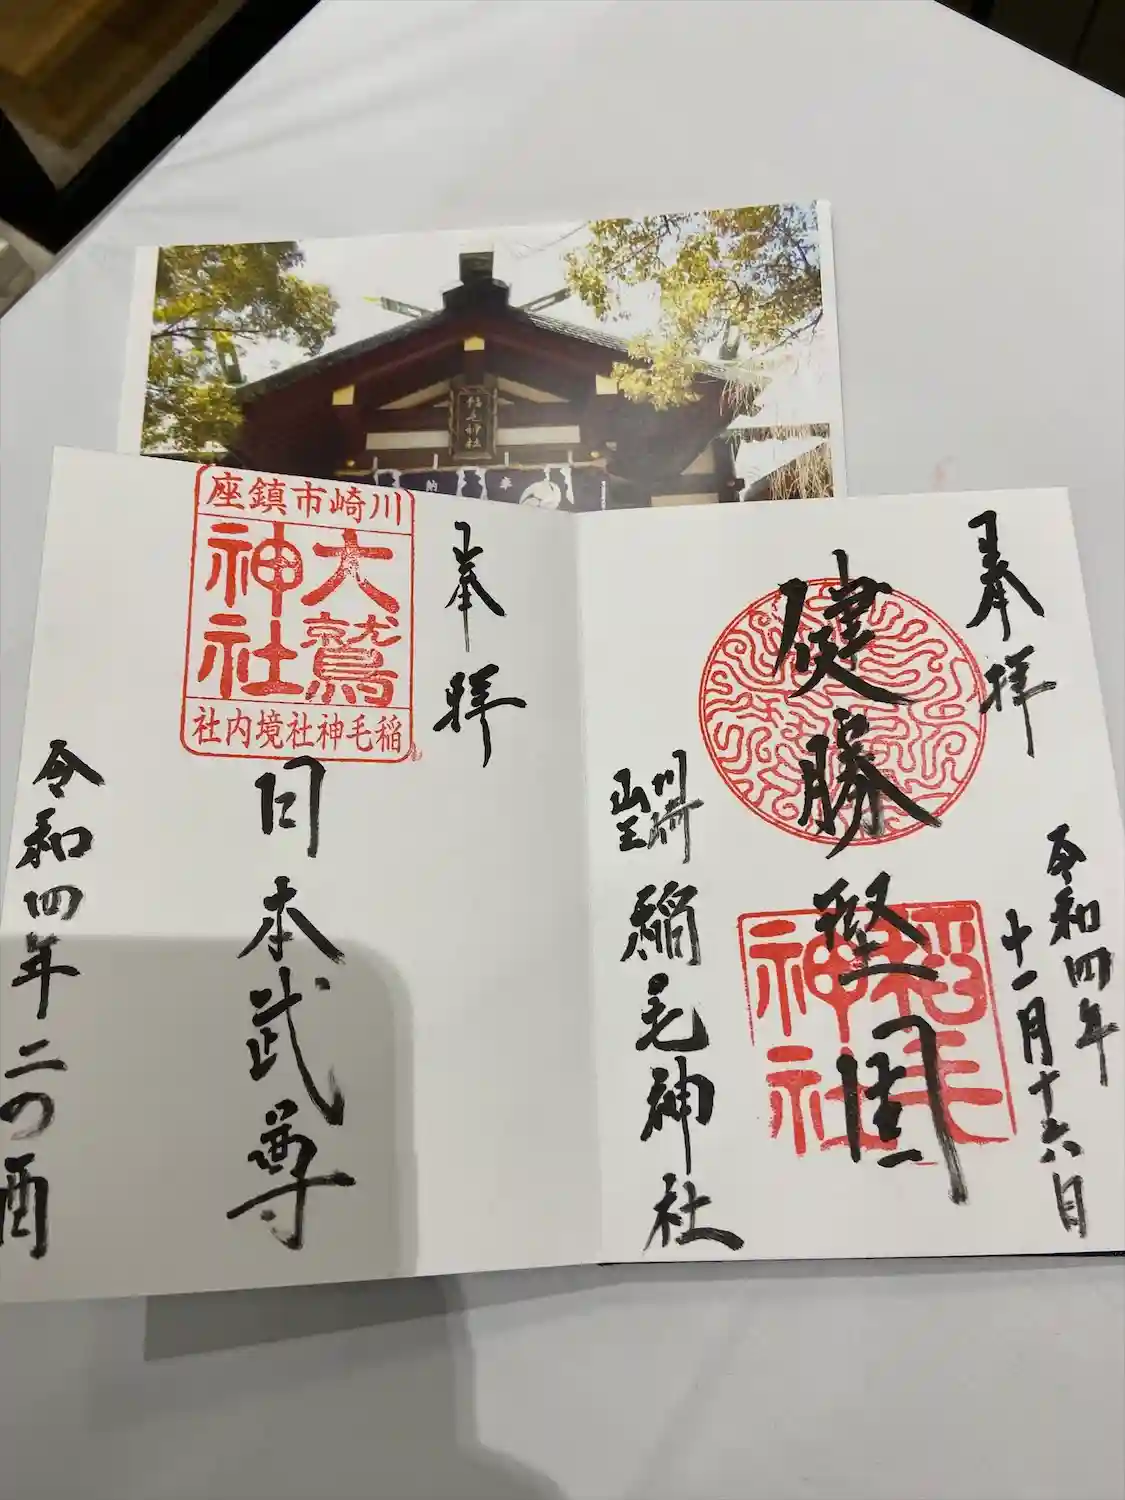 稲毛神社
奉納
奉拝
令和四年
十一月十六日
健勝堅固
稲毛神社
川崎
山王
稲毛神社
奉拝
川崎市鎮座
大鷲神社
稲毛神社境内社
日本武尊
令和四年二の酉